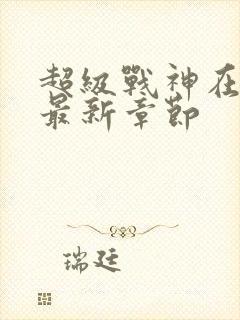 超級戰神在
最新章節
瑞廷